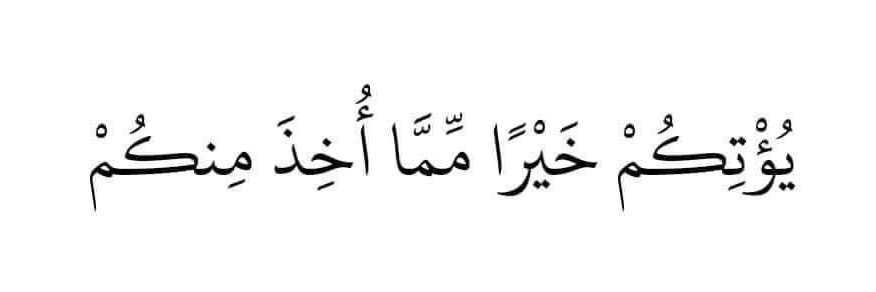 يُؤْتِكُمْ خَيْرًا مِّمَّا أُخِذَ مِنكُمْ